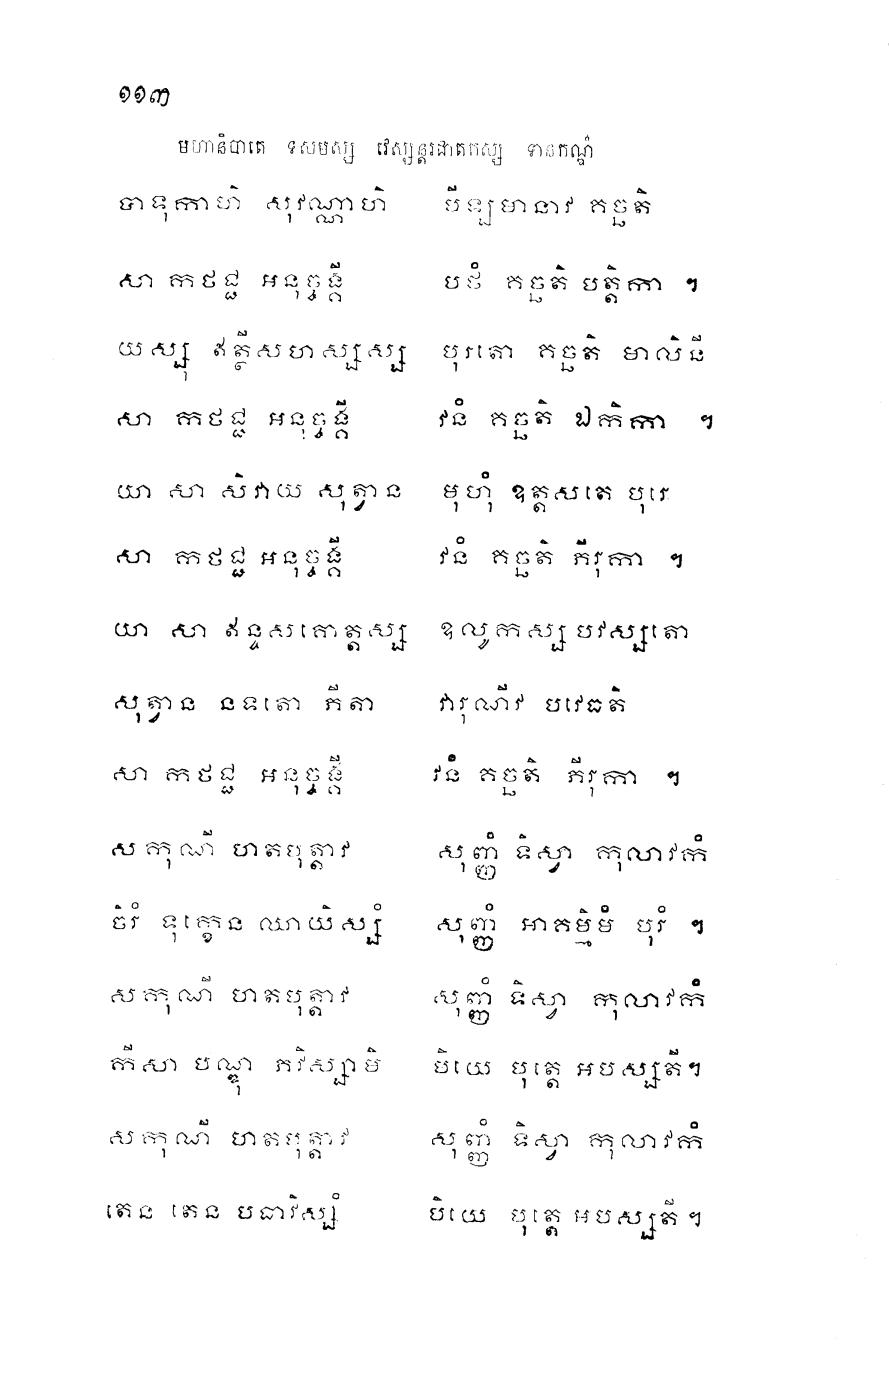 ១១៣
មហានិបាតេ ទសមស្ស វេស្សន្តរជាតកស្ស ទានកណ្ឌំ
បាទុកាហិ សុវណ្ណាហិ បីឡមានាវ គច្ឆតិ
សា កថជ្ជ អនុច្ចង្គី បថំ គច្ឆតិ បត្តិកា ។
យស្សុ ឥត្ថីសហស្សស្ស បុរតោ គច្ឆតិ មាលិនី
សា កថជ្ជ អនុច្ចង្គី វនំ គច្ឆតិ ឯកិកា ។
យា សា សិវាយ សុត្វាន មុហុំ ឧត្តសតេ បុរេ
សា កថជ្ជ អនុច្ចង្គី វនំ គច្ឆតិ ភីរុកា ។
យា សា ឥន្ទសគោត្តស្ស ឧលូកស្ស បវស្សតោ
សុត្វាន នទតោ ភីតា វារុណីវ បវេធតិ
សា កថជ្ជ អនុច្ចង្គី វនំ គច្ឆតិ ភីរុកា ។
សកុណី ហតបុត្តាវ សុញ្ញំ ទិស្វា កុលាវកំ
ចិរំ ទុក្ខេន ឈាយិស្សំ សុញ្ញំ អាគម្មិមំ បុរំ ។
សកុណី ហតបុត្តាវ សុញ្ញំ ទិស្វា កុលាវកំ
កីសា បណ្ឌុ ភវិស្សាមិ បិយេ បុត្តេ អបស្សតី។
សកុណី ហតបុត្តាវ សុញ្ញំ ទិស្វា កុលាវកំ
តេន តេន បធាវិស្សំ បិយេ បុត្តេ អបស្សតី ។